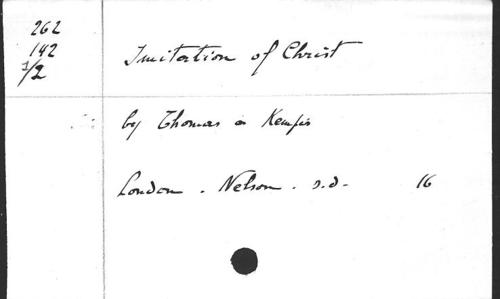 262
142
1/2
Imitation of Christ
by Thomas a Kempis
London . Nelson . s.d. 16